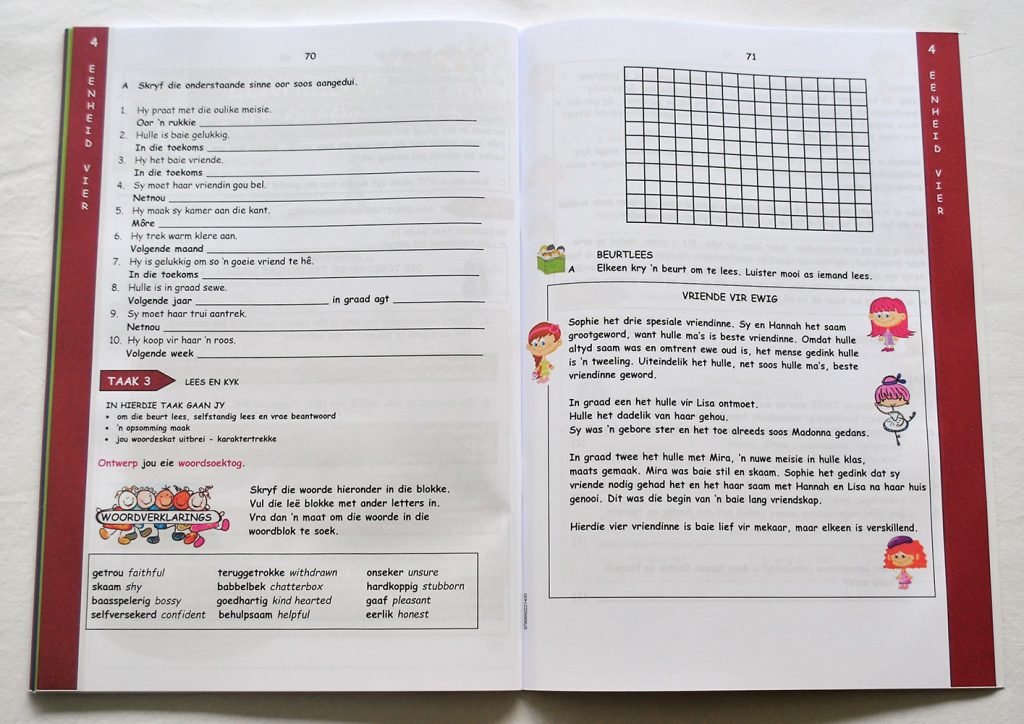 4
EENHEID VIER
70
A Skryf die onderstaande sinne oor soos aangedui.
1. Hy praat met die oulike meisie.
Oor 'n rukkie
2. Hulle is baie gelukkig.
In die toekoms
3. Hy het baie vriende.
In die toekoms
4. Sy moet haar vriendin gou bel.
Netnou
5. Hy maak sy kamer aan die kant.
Môre
6. Hy trek warm klere aan.
Volgende maand
7. Hy is gelukkig om so 'n goeie vriend te hê.
In die toekoms
8. Hulle is in graad sewe.
Volgende jaar in graad agt
9. Sy moet haar trui aantrek.
Netnou
10. Hy koop vir haar 'n roos.
Volgende week
TAAK 3 LEES EN KYK
IN HIERDIE TAAK GAAN JY
• om die beurt lees, selfstandig lees en vrae beantwoord
• 'n opsomming maak
• jou woordeskat uitbrei - karaktertrekke
Ontwerp jou eie woordsoektog.
WOORDVERKLARINGS
Skryf die woorde hieronder in die blokke.
Vul die leë blokke met ander letters in.
Vra dan 'n maat om die woorde in die
woordblok te soek.
getrou faithful teruggetrokke withdrawn onseker unsure
skaam shy babbelbek chatterbox hardkoppig stubborn
baasspelerig bossy goedhartig kind hearted gaaf pleasant
selfversekerd confident behulpsaam helpful eerlik honest
71
4
EENHEID VIER
BEURTLEES
A Elkeen kry 'n beurt om te lees. Luister mooi as iemand lees.
VRIENDE VIR EWIG
Sophie het drie spesiale vriendinne. Sy en Hannah het saam
grootgeword, want hulle ma's is beste vriendinne. Omdat hulle
altyd saam was en omtrent ewe oud is, het mense gedink hulle
is 'n tweeling. Uiteindelik het hulle, net soos hulle ma's, beste
vriendinne geword.
In graad een het hulle vir Lisa ontmoet.
Hulle het dadelik van haar gehou.
Sy was 'n gebore ster en het toe alreeds soos Madonna gedans.
In graad twee het hulle met Mira, 'n nuwe meisie in hulle klas,
maats gemaak. Mira was baie stil en skaam. Sophie het gedink dat sy
vriende nodig gehad het en het haar saam met Hannah en Lisa na haar huis
genooi. Dit was die begin van 'n baie lang vriendskap.
Hierdie vier vriendinne is baie lief vir mekaar, maar elkeen is verskillend.